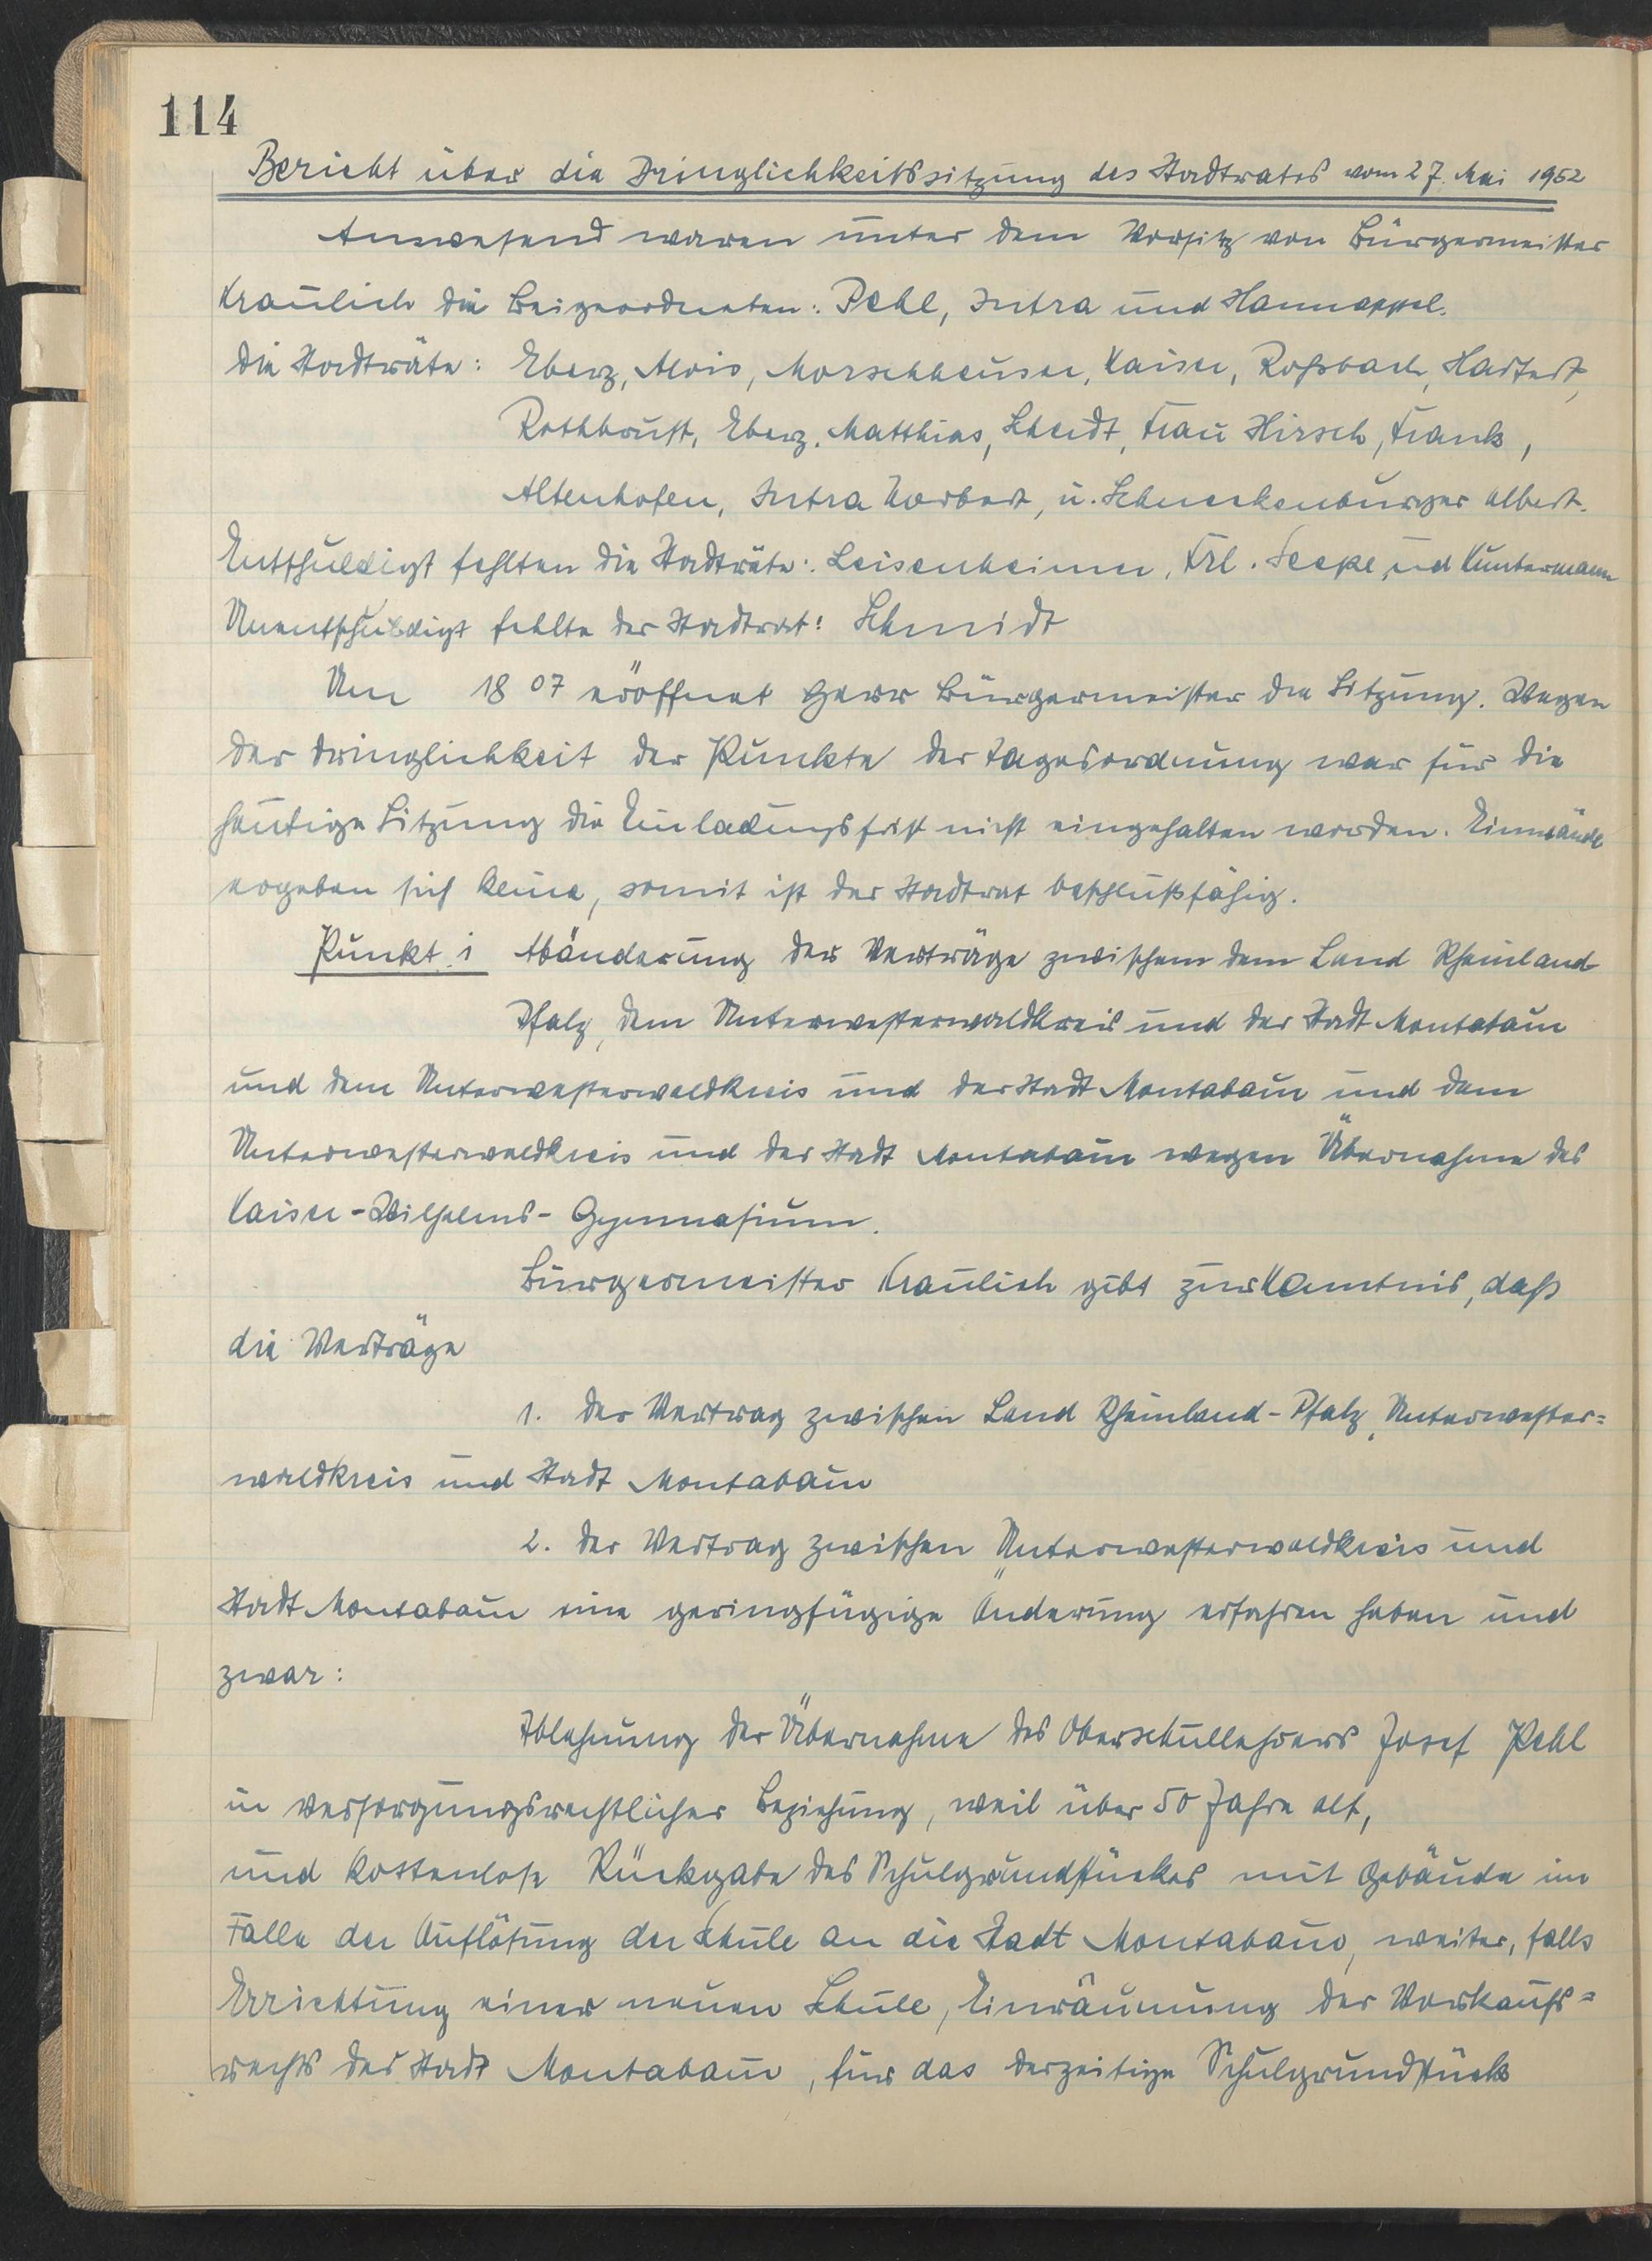 114
Bericht über die Dringlichkeitssitzung des Stadtrates vom 27. Mai 1952
Anwesend waren unter dem Vorsitz von Bürgermeister
Kraulich die Beigeordneten: Pehl, Intra und Hannappel.
Die Stadträte: Eberz, Alois, Morschhäuser, Kaiser, Roßbach, Hartert,
Rothbrust, Eberz, Matthias, Frau Hirsch, Frank,
Altenhofen, Intra Norbert, u. Schneckenburger Albert.
Entschuldigt fehlten die Stadträte: Leisenheimer, Frl. und Kuntermann
Unentschuldigt fehlte der Stadtrat: Schmidt
Um 18 07 eröffnet Herr Bürgermeister die Sitzung. Wegen
der Dringlichkeit der Punkte der Tagesordnung war für die
heutige Sitzung die Einladungsfrist nicht eingehalten worden. Einwände
ergeben sich keine, somit ist der Stadtrat beschlußfähig.
Punkt 1 Abänderung der Verträge zwischen dem Land Rheinland
Pfalz, dem Unterwesterwaldkreis und der Stadt Montabaur
und dem Unterwesterwaldkreis und der Stadt Montabaur und dem
Unterwesterwaldkreis und der Stadt Montabaur wegen Übernahme des
Kaiser-Wilhelms-Gymnasium.
Bürgermeister Kraulich gibt zur Kenntnis, daß
die Verträge
1. der Vertrag zwischen Land Rheinland-Pfalz, Unterwester=
waldkreis und Stadt Montabaur
2. der Vertrag zwischen Unterwesterwaldkreis und
Stadt Montabaur eine geringfügige Änderung erfahren haben und
zwar:
Ablehnung der Übernahme des Oberschullehrers Josef Pehl
in versorgungsrechtlicher Beziehung, weil über 50 Jahre alt,
und kostenlose Rückgabe des Schulgrundstückes mit Gebäude im
Falle der Auflösung der Schule an die Stadt Montabaur, weiter, falls
Errichtung einer neuen Schule, Einräumung der Vorkaufs=
rechts der Stadt Montabaur, für das derzeitige Schulgrundstück